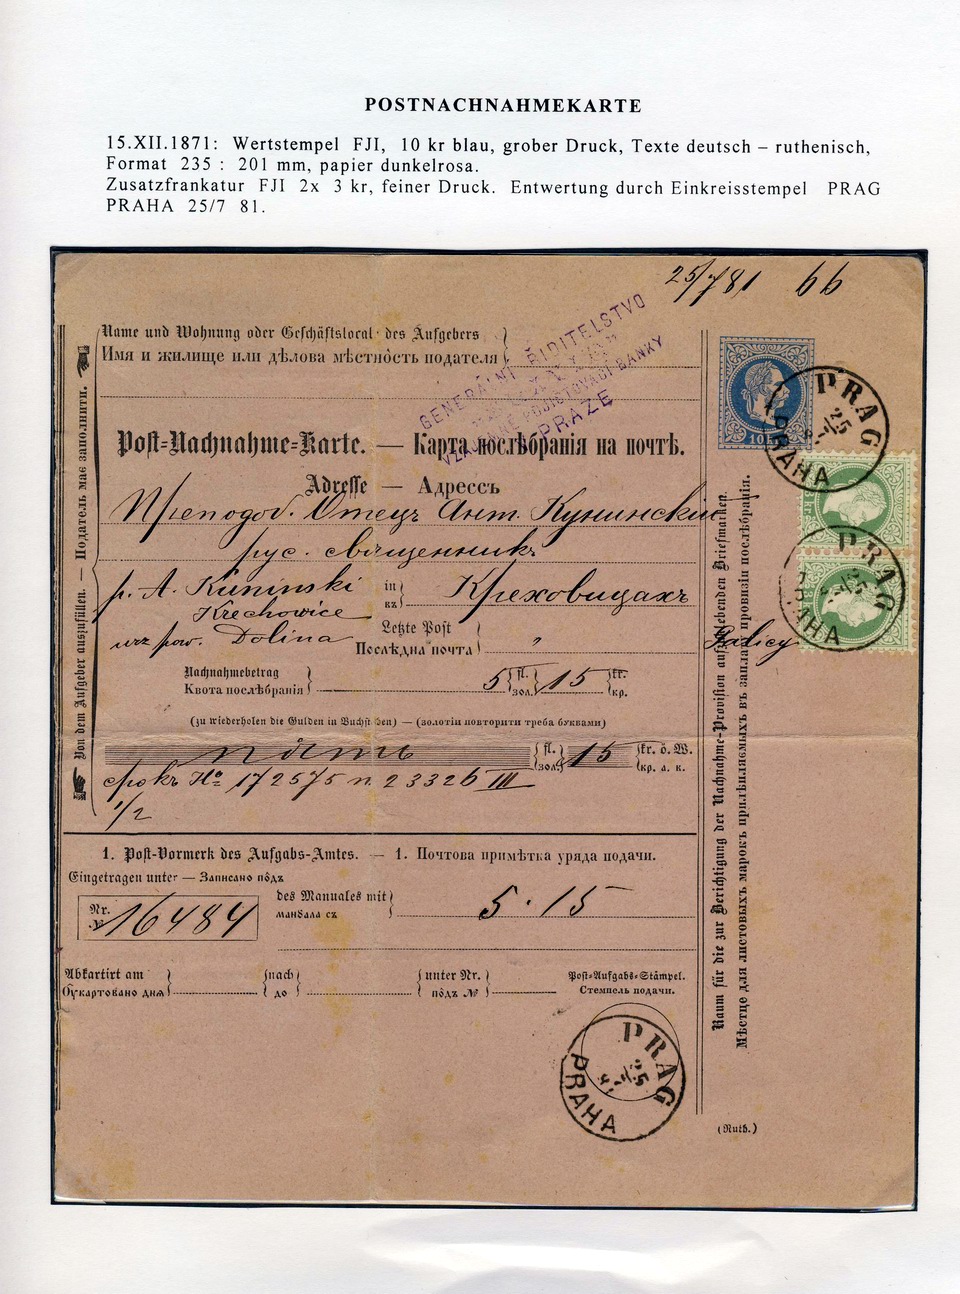 POSTNACHNAHMEKARTE
15.XII.1871: Wertstempel FJI, 10 kr blau, grober Druck, Texte deutsch – ruthenisch,
Format 235 : 201 mm, papier dunkelrosa.
Zusatzfrankatur FJI 2x 3 kr, feiner Druck. Entwertung durch Einkreisstempel PRAG
PRAHA 25/7 81.
25/7 81 66
Name und Wohnung oder Geschäftslocal des Aufgebers
Имя и жилище или дѣлова мѣстность подателя
GENERÁLNÍ ŘIDITELSTVO
VZÁJEMNÉ POJIŠŤOVACÍ BANKY
PRAZE
Post-Nachnahme-Karte. — Карта послѣбранія на почтѣ.
Adresse — Адрессъ
Преподоб. Отецъ Ант. Кунинскій
рус. священникъ
p. A. Kuninski in въ Креховицахъ
Krechowice
pow. Dolina Letzte Post Послѣдна почта " Galicy
Nachnahmebetrag
Квота послѣбранія 5 fl. зол. 15 kr. кр.
(zu wiederholen die Gulden in Buchstaben) — (золотіи повторити треба буквами)
пять fl. зол. 15 kr. ö. W. кр. а. к.
срокъ № 172575 п. 23326 III
1/2
1. Post-Vormerk des Aufgabs-Amtes. — 1. Почтова примѣтка уряда подачи.
Eingetragen unter — Записано пôдъ
Nr. № 16484 des Manuales mit манѕала съ 5 · 15
Abkartirt am nach unter Nr. Post-Aufgabs-Stämpel.
Ѹкартовано дня до пôдъ № Стемпель подачи.
PRAG 25/7 81 PRAHA
Von dem Aufgeber auszufüllen. — Податель має заполнити.
Raum für die zur Berichtigung der Nachnahme-Provision aufzuklebenden Briefmarken.
Мѣстце для листовыхъ марокъ прилѣпляємыхъ въ заплату провизіи послѣбранія.
10 kr
PRAG 25/7 PRAHA
3 kr
PRAG PRAHA
(Ruth.)